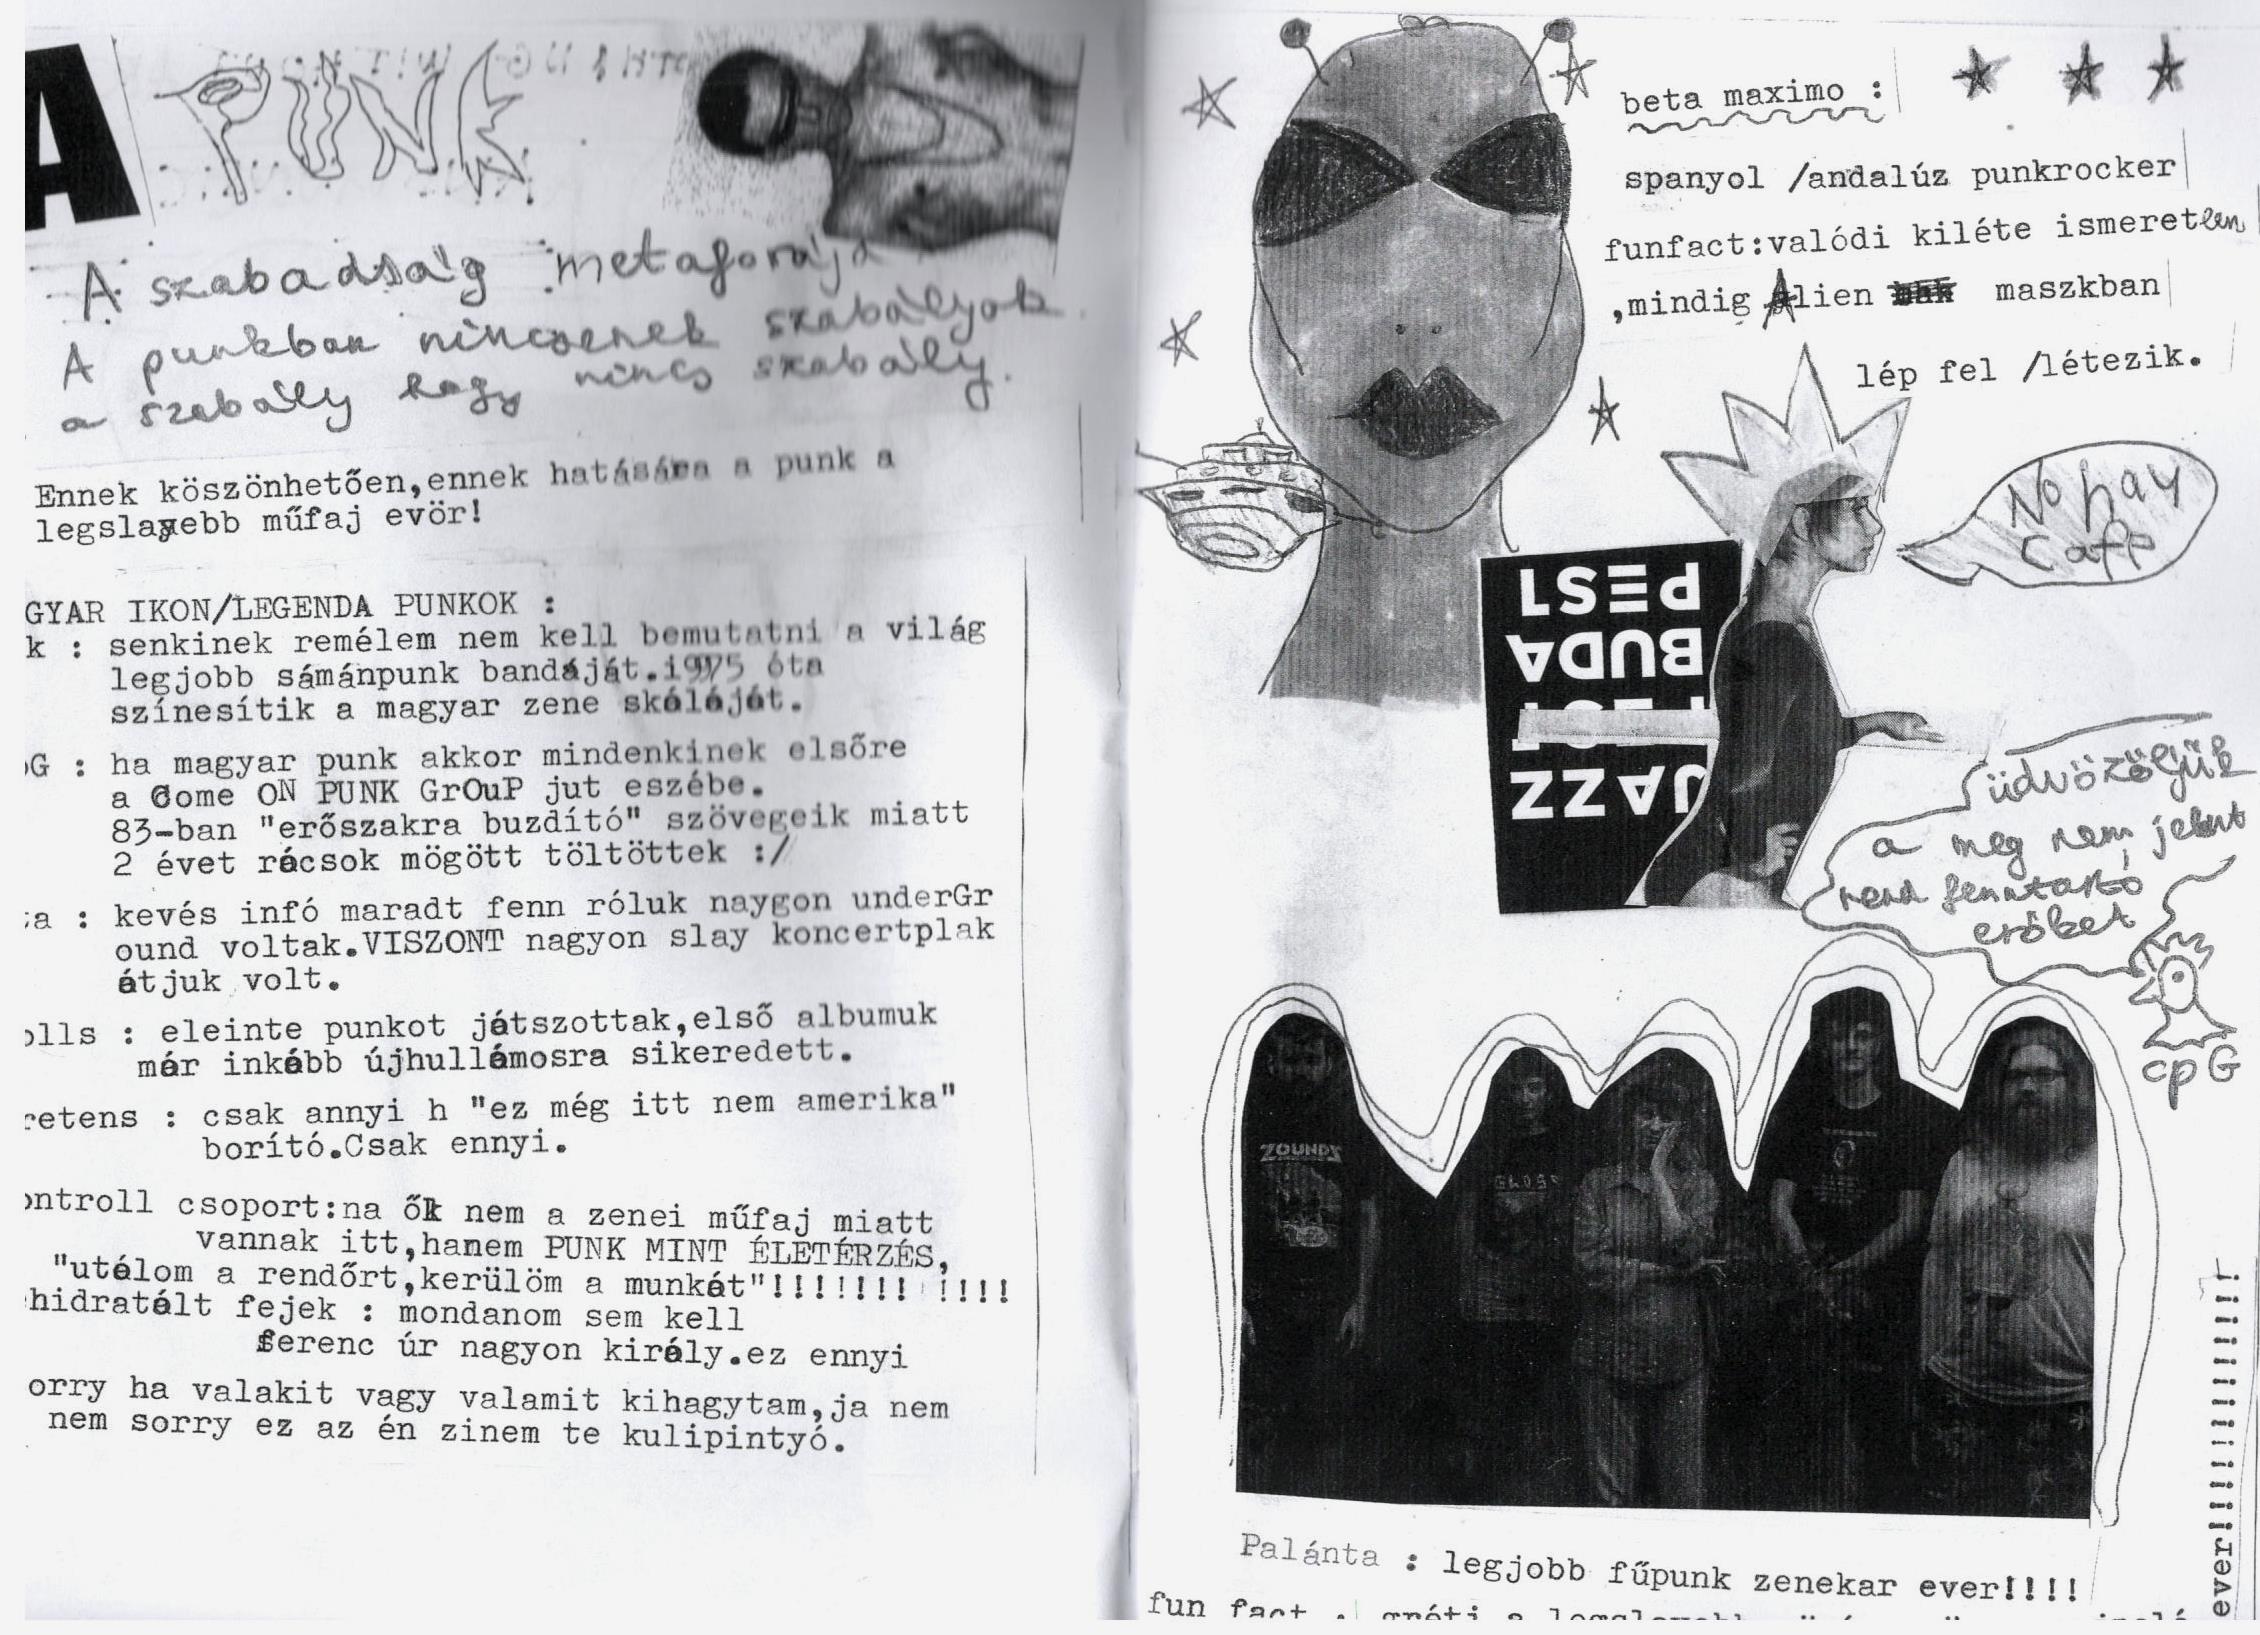 A PUNK
A szabadság metaforája
A punkban nincsenek szabályok
a szabály hogy nincs szabály.
Ennek köszönhetően,ennek hatására a punk a
legslayebb műfaj evör!
GYAR IKON/LEGENDA PUNKOK :
k : senkinek remélem nem kell bemutatni a világ
legjobb sámánpunk bandáját.1975 óta
színesítik a magyar zene skáláját.
G : ha magyar punk akkor mindenkinek elsőre
a Come ON PUNK GrOuP jut eszébe.
83-ban "erőszakra buzdító" szövegeik miatt
2 évet rácsok mögött töltöttek :/
a : kevés infó maradt fenn róluk naygon underGr
ound voltak.VISZONT nagyon slay koncertplak
átjuk volt.
olls : eleinte punkot játszottak,első albumuk
már inkább újhullámosra sikeredett.
retens : csak annyi h "ez még itt nem amerika"
borító.Csak ennyi.
ontroll csoport:na ők nem a zenei műfaj miatt
vannak itt,hanem PUNK MINT ÉLETÉRZÉS,
"utálom a rendőrt,kerülöm a munkát"!!!!!!! !!!!
hidratált fejek : mondanom sem kell
ferenc úr nagyon király.ez ennyi
orry ha valakit vagy valamit kihagytam,ja nem
nem sorry ez az én zinem te kulipintyó.
beta maximo :
spanyol /andalúz punkrocker
funfact:valódi kiléte ismeretlen
,mindig Alien maszkban
lép fel /létezik.
No hay
café
PEST
BUDA
JAZZ
üdvözöljük
a meg nem jelent
rend fenntartó
erőket
cpG
ZOUNDS
Palánta : legjobb fűpunk zenekar ever!!!!
fun fact :
ever!!!!!!!!!!!!!!!!!!!!